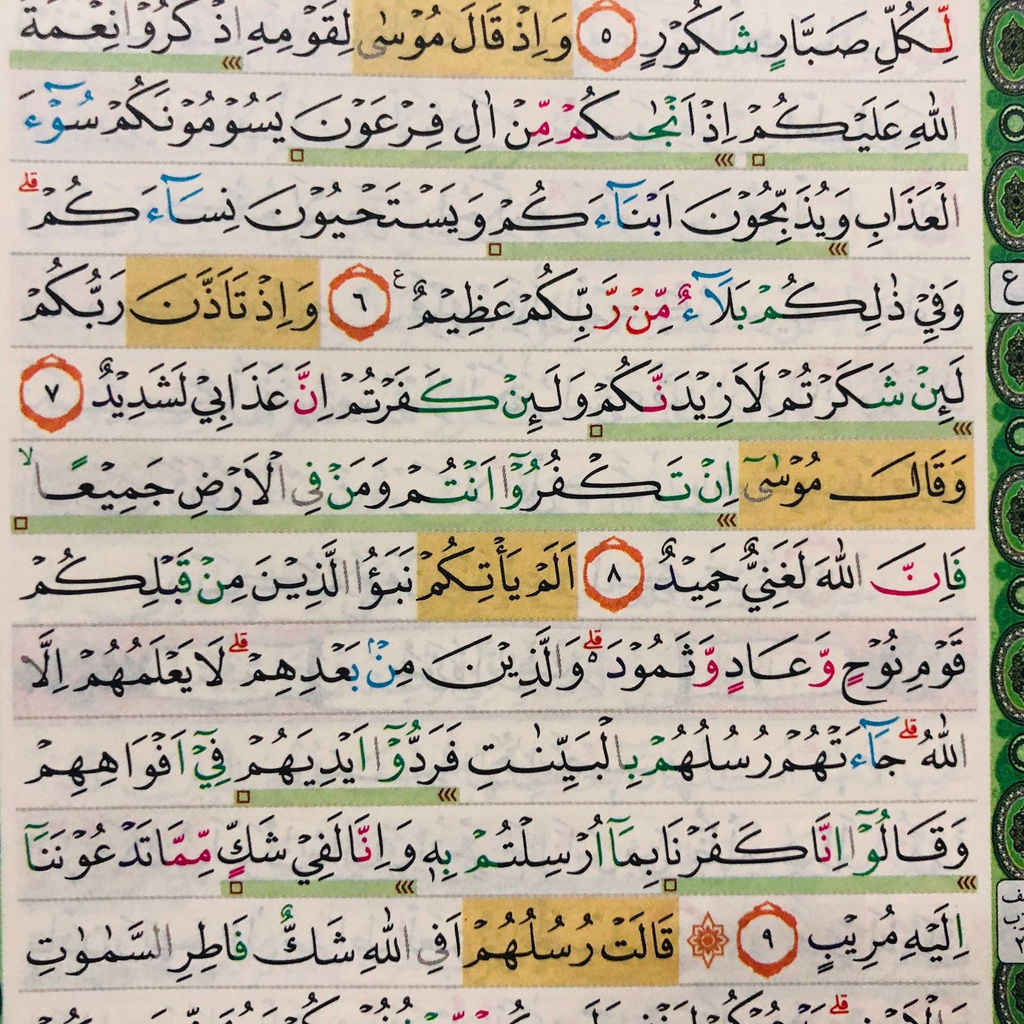 لِّكُلِّ صَبَّارٍ شَكُوْرٍ ۝٥ وَاِذْ قَالَ مُوْسٰى لِقَوْمِهِ اذْكُرُوْا نِعْمَةَ
اللّٰهِ عَلَيْكُمْ اِذْ اَنْجٰىكُمْ مِّنْ اٰلِ فِرْعَوْنَ يَسُوْمُوْنَكُمْ سُوْٓءَ
الْعَذَابِ وَيُذَبِّحُوْنَ اَبْنَآءَكُمْ وَيَسْتَحْيُوْنَ نِسَآءَكُمْ ۗ
وَفِيْ ذٰلِكُمْ بَلَآءٌ مِّنْ رَّبِّكُمْ عَظِيْمٌ ࣖ ۝٦ وَاِذْ تَاَذَّنَ رَبُّكُمْ
لَىِٕنْ شَكَرْتُمْ لَاَزِيْدَنَّكُمْ وَلَىِٕنْ كَفَرْتُمْ اِنَّ عَذَابِيْ لَشَدِيْدٌ ۝٧
وَقَالَ مُوْسٰٓى اِنْ تَكْفُرُوْٓا اَنْتُمْ وَمَنْ فِى الْاَرْضِ جَمِيْعًا ۙ
فَاِنَّ اللّٰهَ لَغَنِيٌّ حَمِيْدٌ ۝٨ اَلَمْ يَأْتِكُمْ نَبَؤُا الَّذِيْنَ مِنْ قَبْلِكُمْ
قَوْمِ نُوْحٍ وَّعَادٍ وَّثَمُوْدَ ەۗ وَالَّذِيْنَ مِنْۢ بَعْدِهِمْ ۗ لَا يَعْلَمُهُمْ اِلَّا
اللّٰهُ ۗ جَآءَتْهُمْ رُسُلُهُمْ بِالْبَيِّنٰتِ فَرَدُّوْٓا اَيْدِيَهُمْ فِيْٓ اَفْوَاهِهِمْ
وَقَالُوْٓا اِنَّا كَفَرْنَا بِمَآ اُرْسِلْتُمْ بِهٖ وَاِنَّا لَفِيْ شَكٍّ مِّمَّا تَدْعُوْنَنَآ
اِلَيْهِ مُرِيْبٍ ۝٩ قَالَتْ رُسُلُهُمْ اَفِى اللّٰهِ شَكٌّ فَاطِرِ السَّمٰوٰتِ
ع